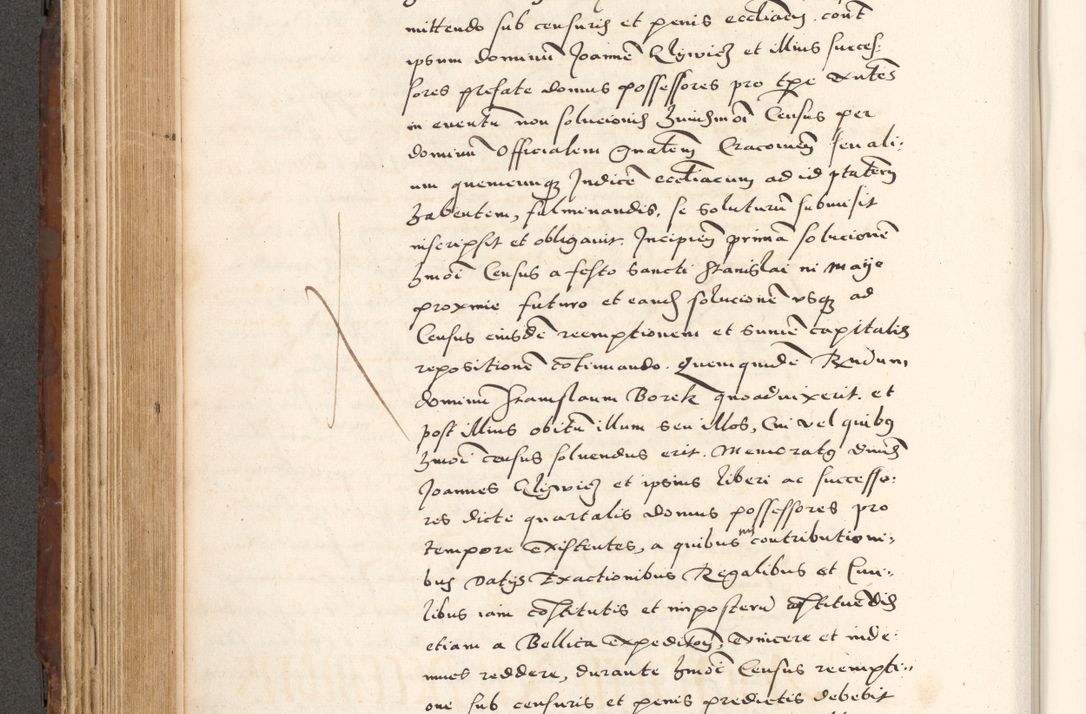 mittendo sub censuris et penis eccliacis cont
ipsum dominum Joannē et illius succes:
sores prefate domus possessores pro tpe exn̄tes
in eventū non solucionis hmōi Census per
dominum Officialem Gnalem Cracovien̄ seu ali:
um quemcunq Judicē eccliacum ad id p̄tatem
habentem, fulminandis, se soluturū submisit
inscripsit et obligavit. Incipien̄ primā solucionē
hmōi Census a festo Sancti Stanislai in Maÿo
proxime futuro et eandē solucionē vsq ad
Census eiusdē reemptionem et sumē capitalis
repositionē cōtinuando. Quemquidē Rndum
dominū Stanislaum Borek quoaduixerit. et
post illius obitū illum seu illos, Cui vel quibq
hmōi census soluendus erit. Memoratq dnus
Joannes et ipsius liberi ac successo:
res dicte quartalis domus possessores pro
tempore existentes, a quibus contributioni:
bus Datijs Exactionibus Regalibus et Civi:
libus iam cōstitutis et imposterū cōstituēdis
etiam a Bellica expeditōn, evincere et inde:
mnes reddere, durante hmōi Census reempti:
one sub censuris et penis predictis debebit